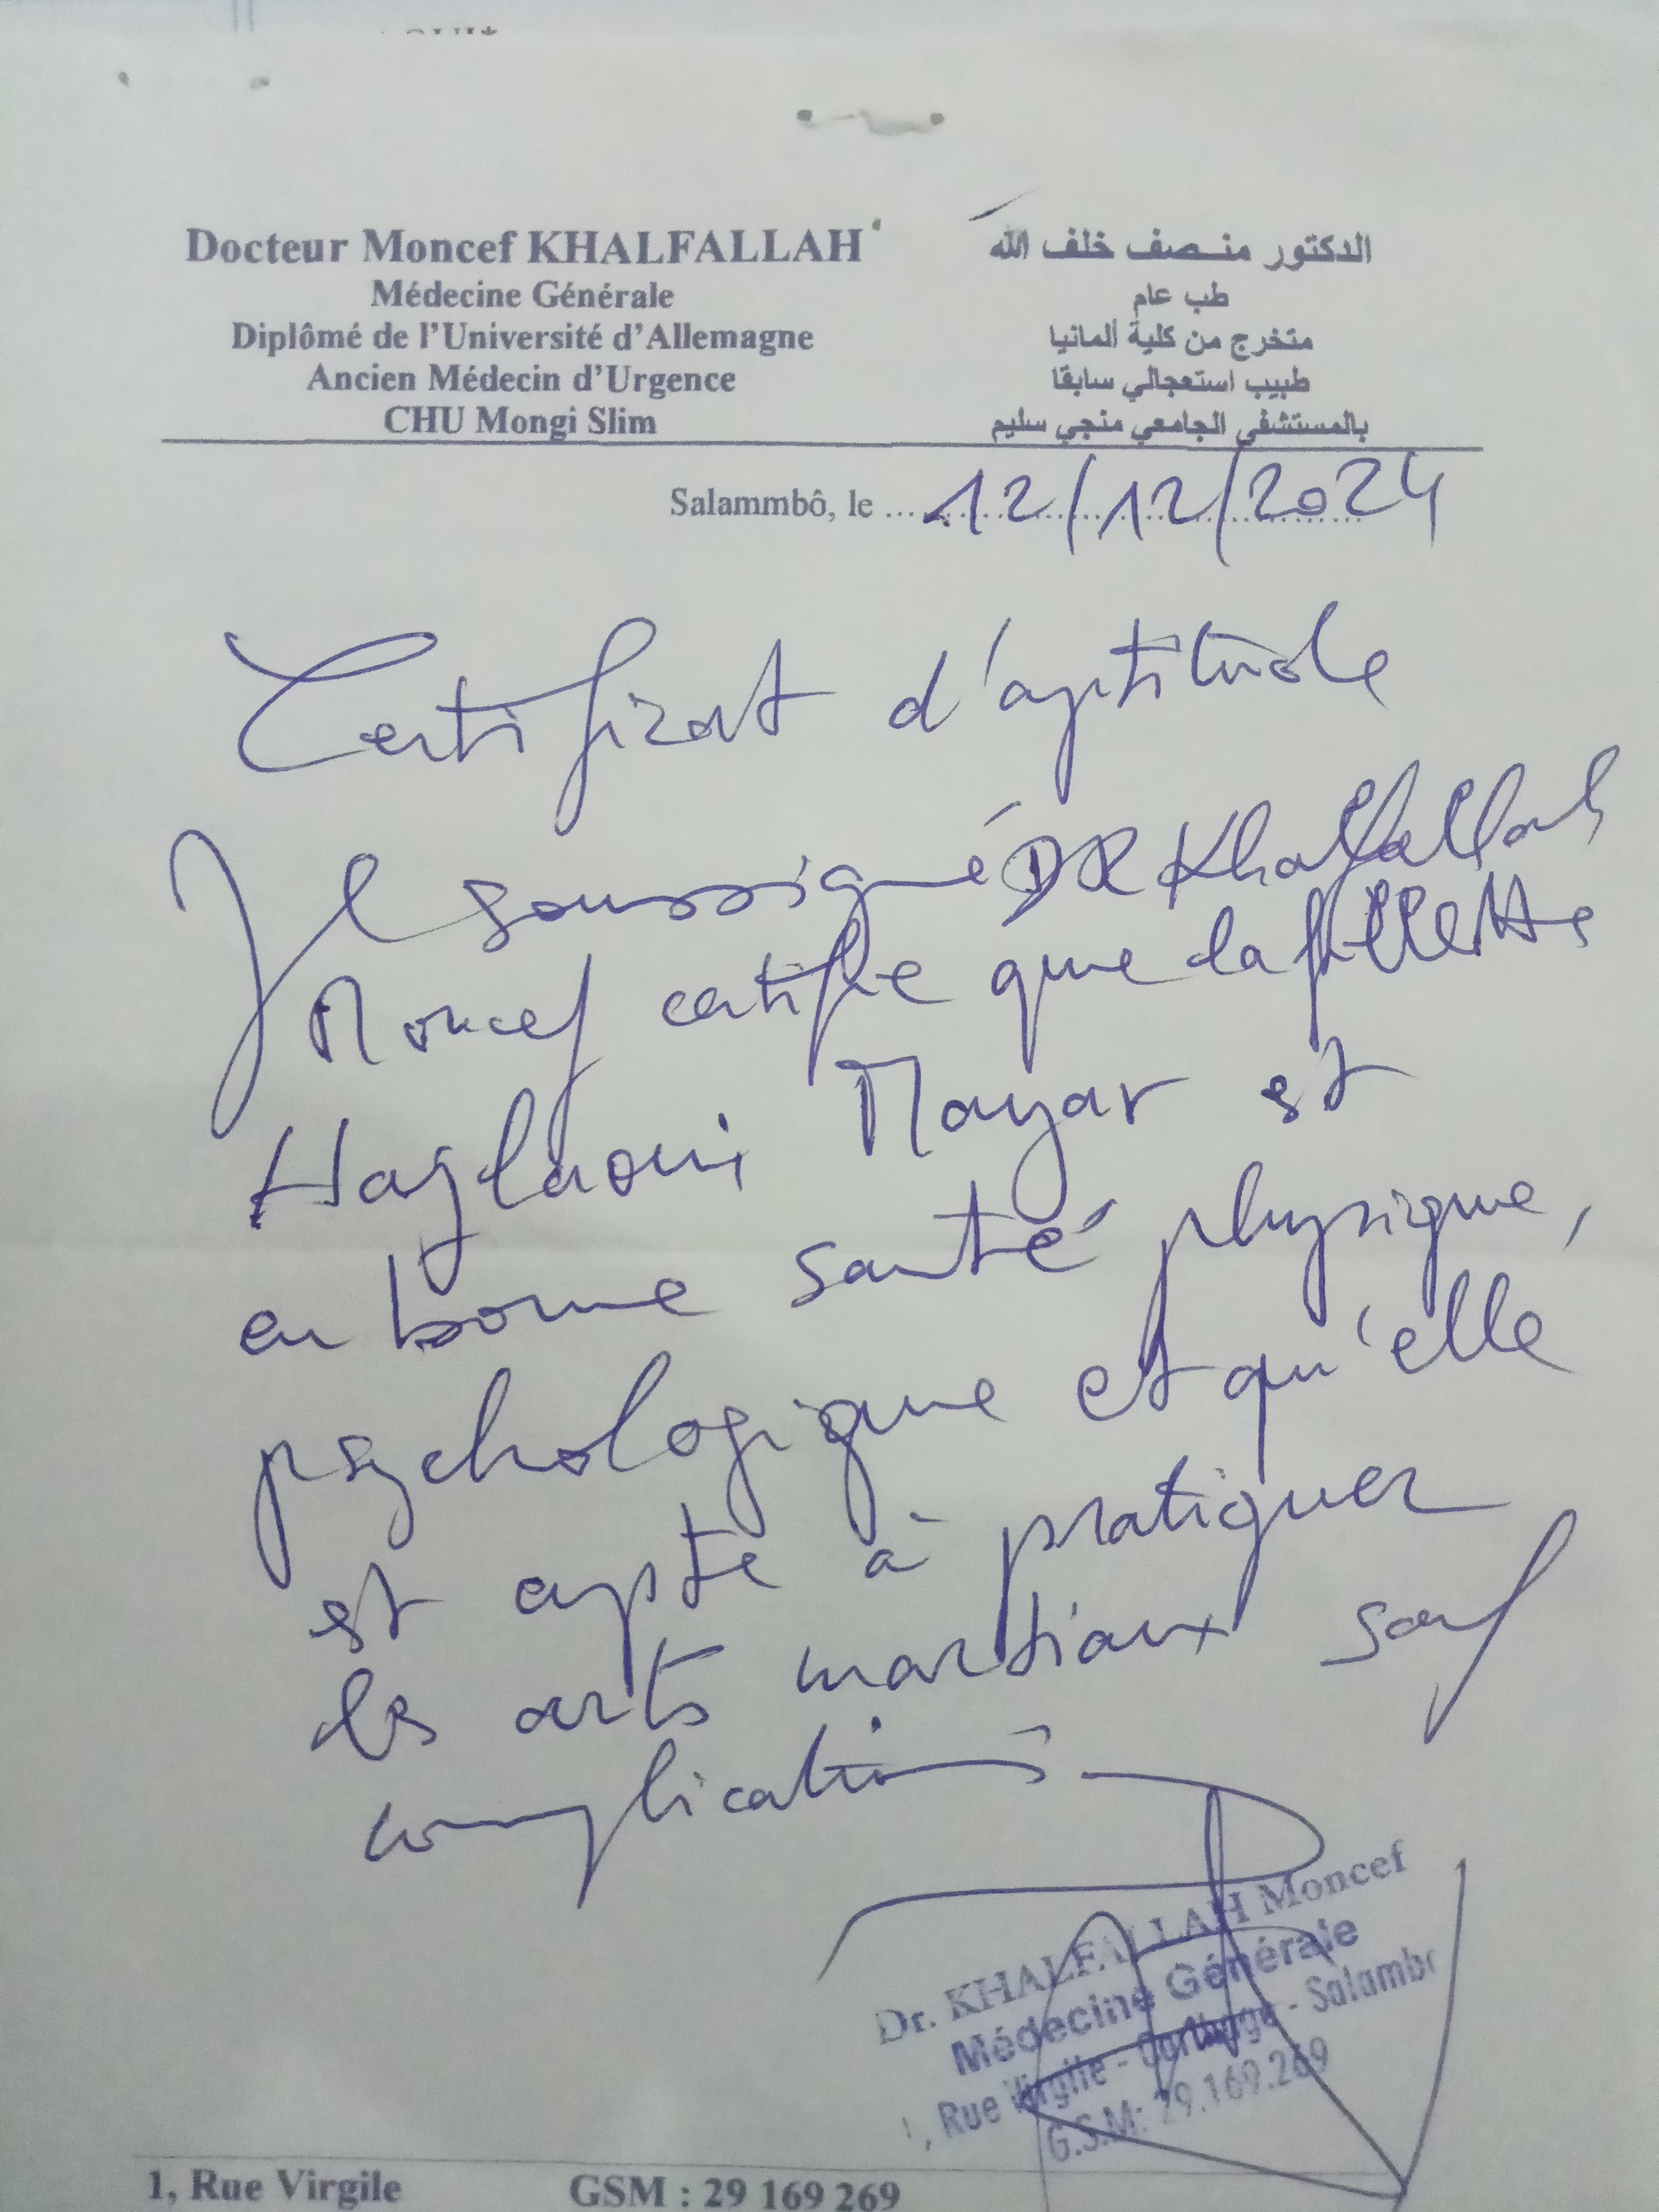 Docteur Moncef KHALFALLAH
Médecine Générale
Diplômé de l'Université d'Allemagne
Ancien Médecin d'Urgence
CHU Mongi Slim
الدكتور منصف خلف الله
طب عام
متخرج من كلية ألمانيا
طبيب استعجالي سابقا
بالمستشفى الجامعي منجي سليم
Salammbô, le 12/12/2024
Certificat d'aptitude
Je soussigné DR Khalfallah
Moncef certifie que la fillette
Haglaoui Mayar est
en bonne santé physique,
psychologique et qu'elle
est apte à pratiquer
les arts martiaux sauf
complications
Dr. KHALFALLAH Moncef
Médecine Générale
1, Rue Virgile - Carthage - Salambo
G.S.M: 29.169.269
1, Rue Virgile GSM : 29 169 269